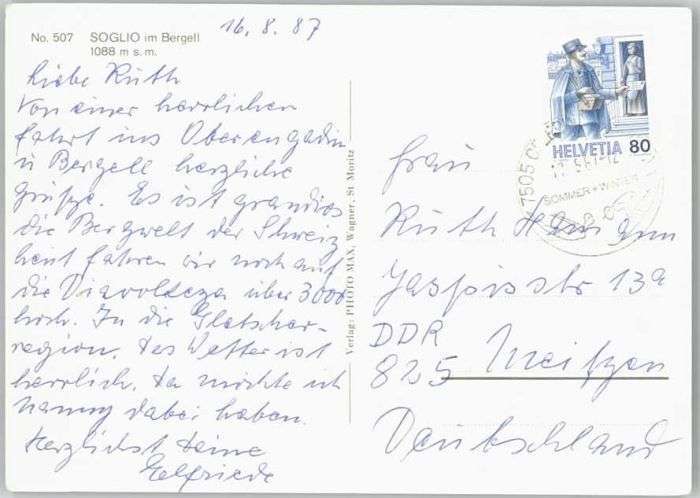 16.8.87
No. 507 SOGLIO im Bergell
1088 m s. m.
Liebe Ruth
Von einer herrlichen
Fahrt ins Oberengadin
u Bergell herzliche
Grüße. Es ist grandios
die Bergwelt der Schweiz
heut fahren wir noch auf
die Diavolezza über 3000
hoch. In die Gletscher-
region. Das Wetter ist
herrlich. Da möchte ich
Hanny dabei haben.
Herzlichst Deine
Elfriede
Verlag: PHOTO MAX, Wagner, St. Moritz
HELVETIA 80
7505
SOMMER + WINTER
Frau
Ruth Hamann
Jaspisstr 13a
DDR
825 Meißen
Deutschland